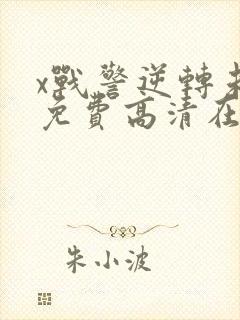 x戰警逆轉
免費高清在
朱小波